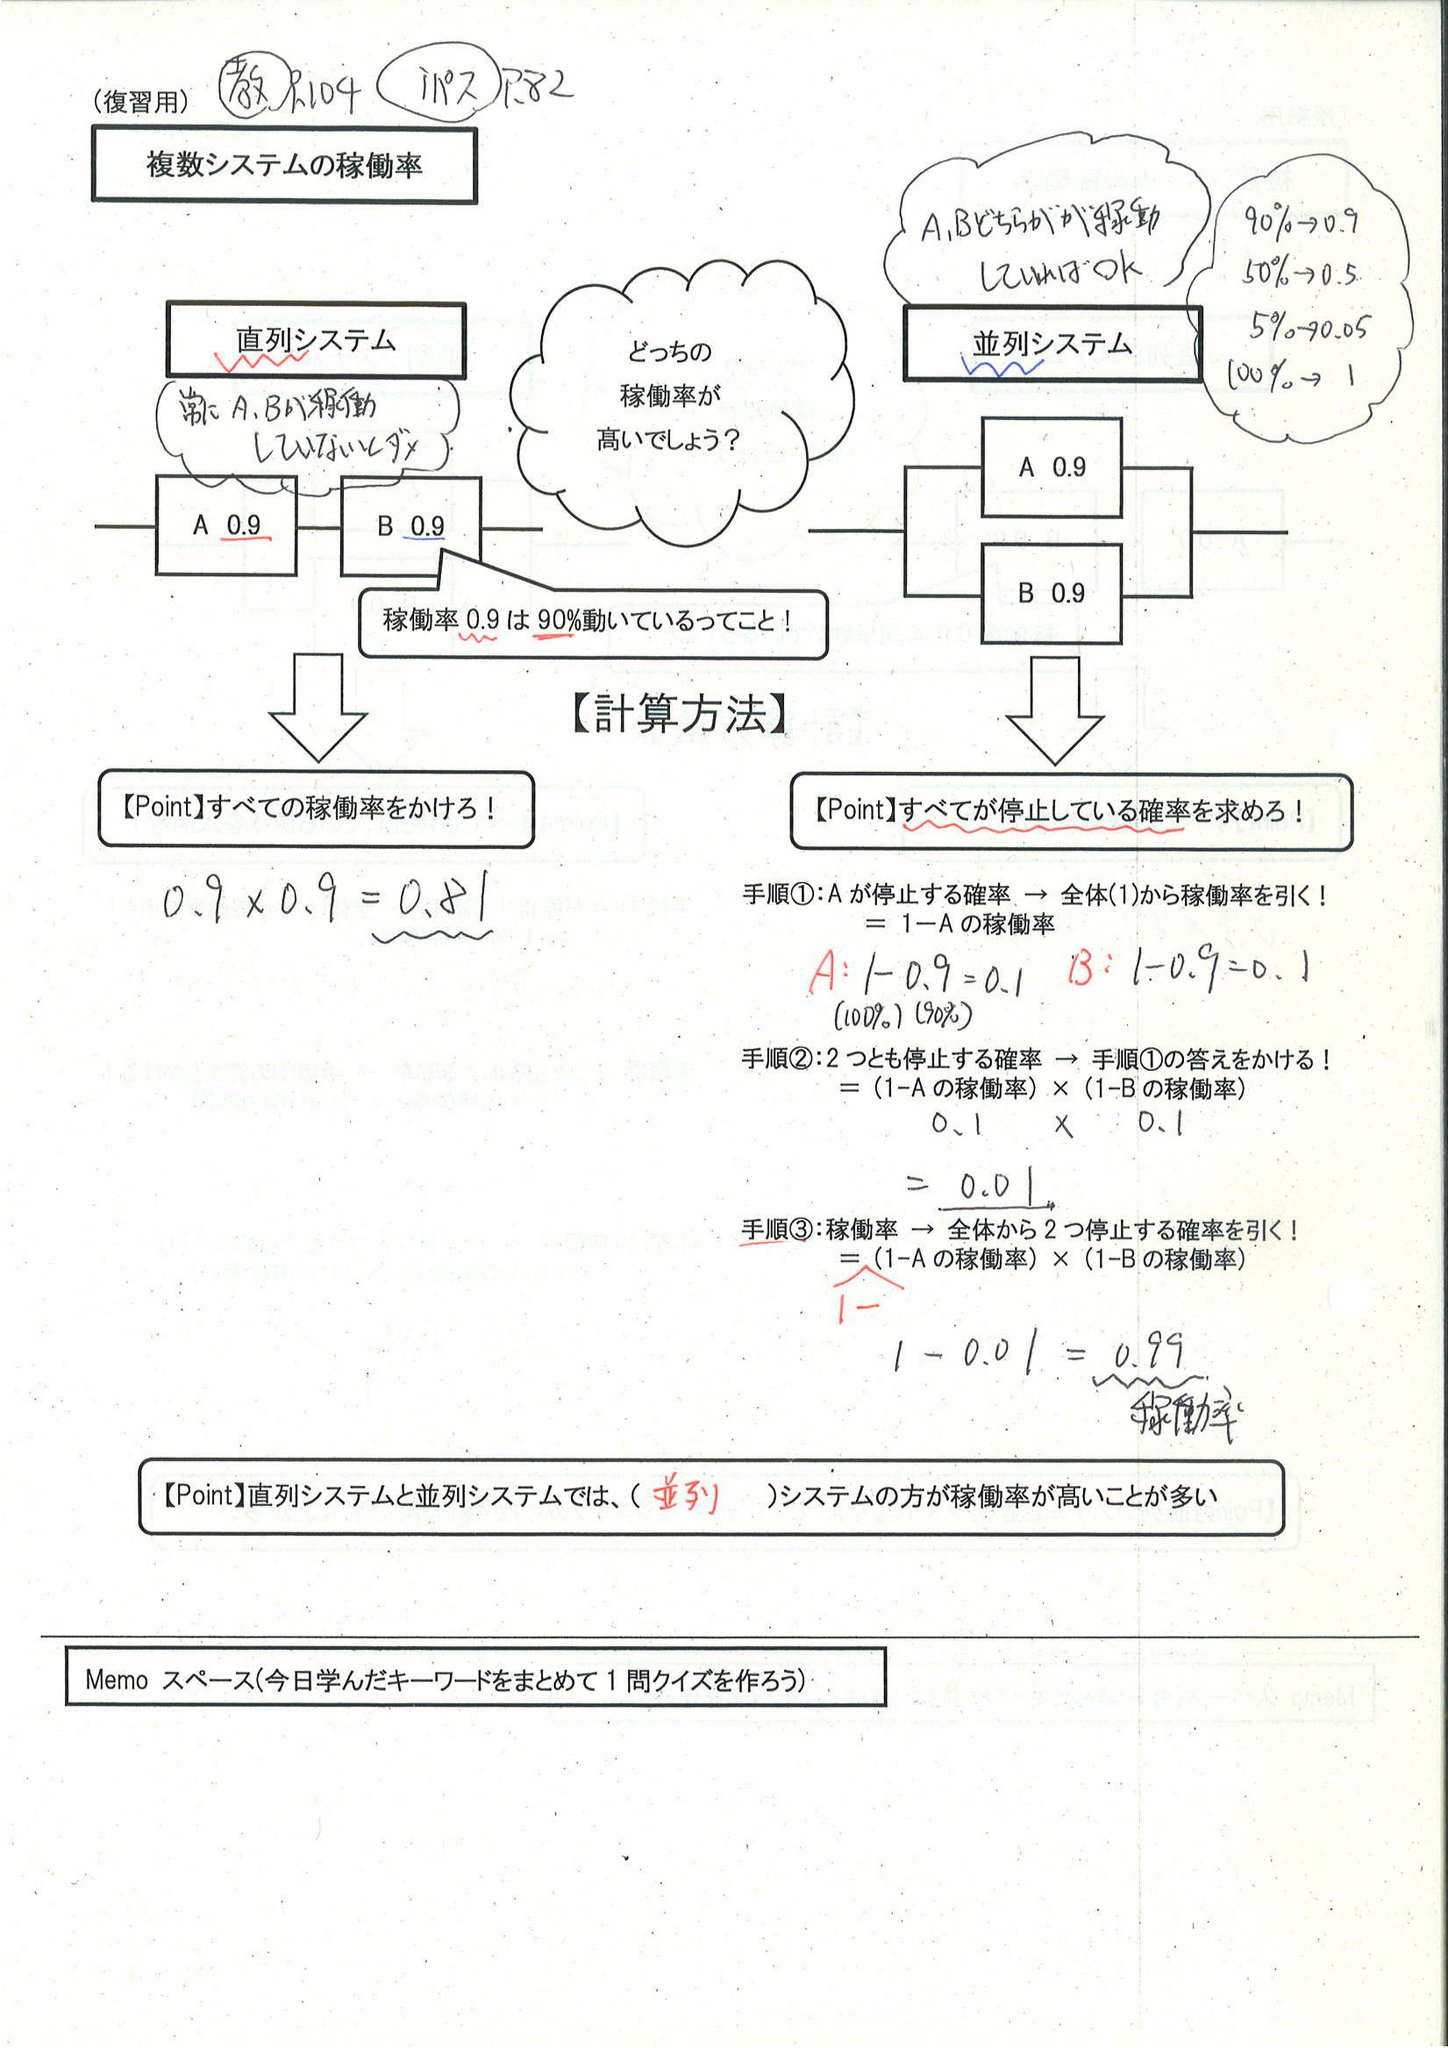 (復習用) 教 P.104 iパス P.82
複数システムの稼働率
A,Bどちらかが稼働
していればOK
90%→0.9
50%→0.5
5%→0.05
100%→1
直列システム
常にA,Bが稼働
していないとダメ
どっちの
稼働率が
高いでしょう?
並列システム
A 0.9
B 0.9
A 0.9
B 0.9
稼働率 0.9 は 90%動いているってこと!
【計算方法】
【Point】すべての稼働率をかけろ!
0.9×0.9=0.81
【Point】すべてが停止している確率を求めろ!
手順①:A が停止する確率 → 全体(1)から稼働率を引く!
= 1-A の稼働率
A: 1-0.9=0.1 B: 1-0.9=0.1
(100%) (90%)
手順②:2 つとも停止する確率 → 手順①の答えをかける!
= (1-A の稼働率) × (1-B の稼働率)
0.1 × 0.1
= 0.01
手順③:稼働率 → 全体から 2 つ停止する確率を引く!
= (1-A の稼働率) × (1-B の稼働率)
1-
1-0.01=0.99
稼働率
【Point】直列システムと並列システムでは、( 並列 )システムの方が稼働率が高いことが多い
Memo スペース(今日学んだキーワードをまとめて 1 問クイズを作ろう)